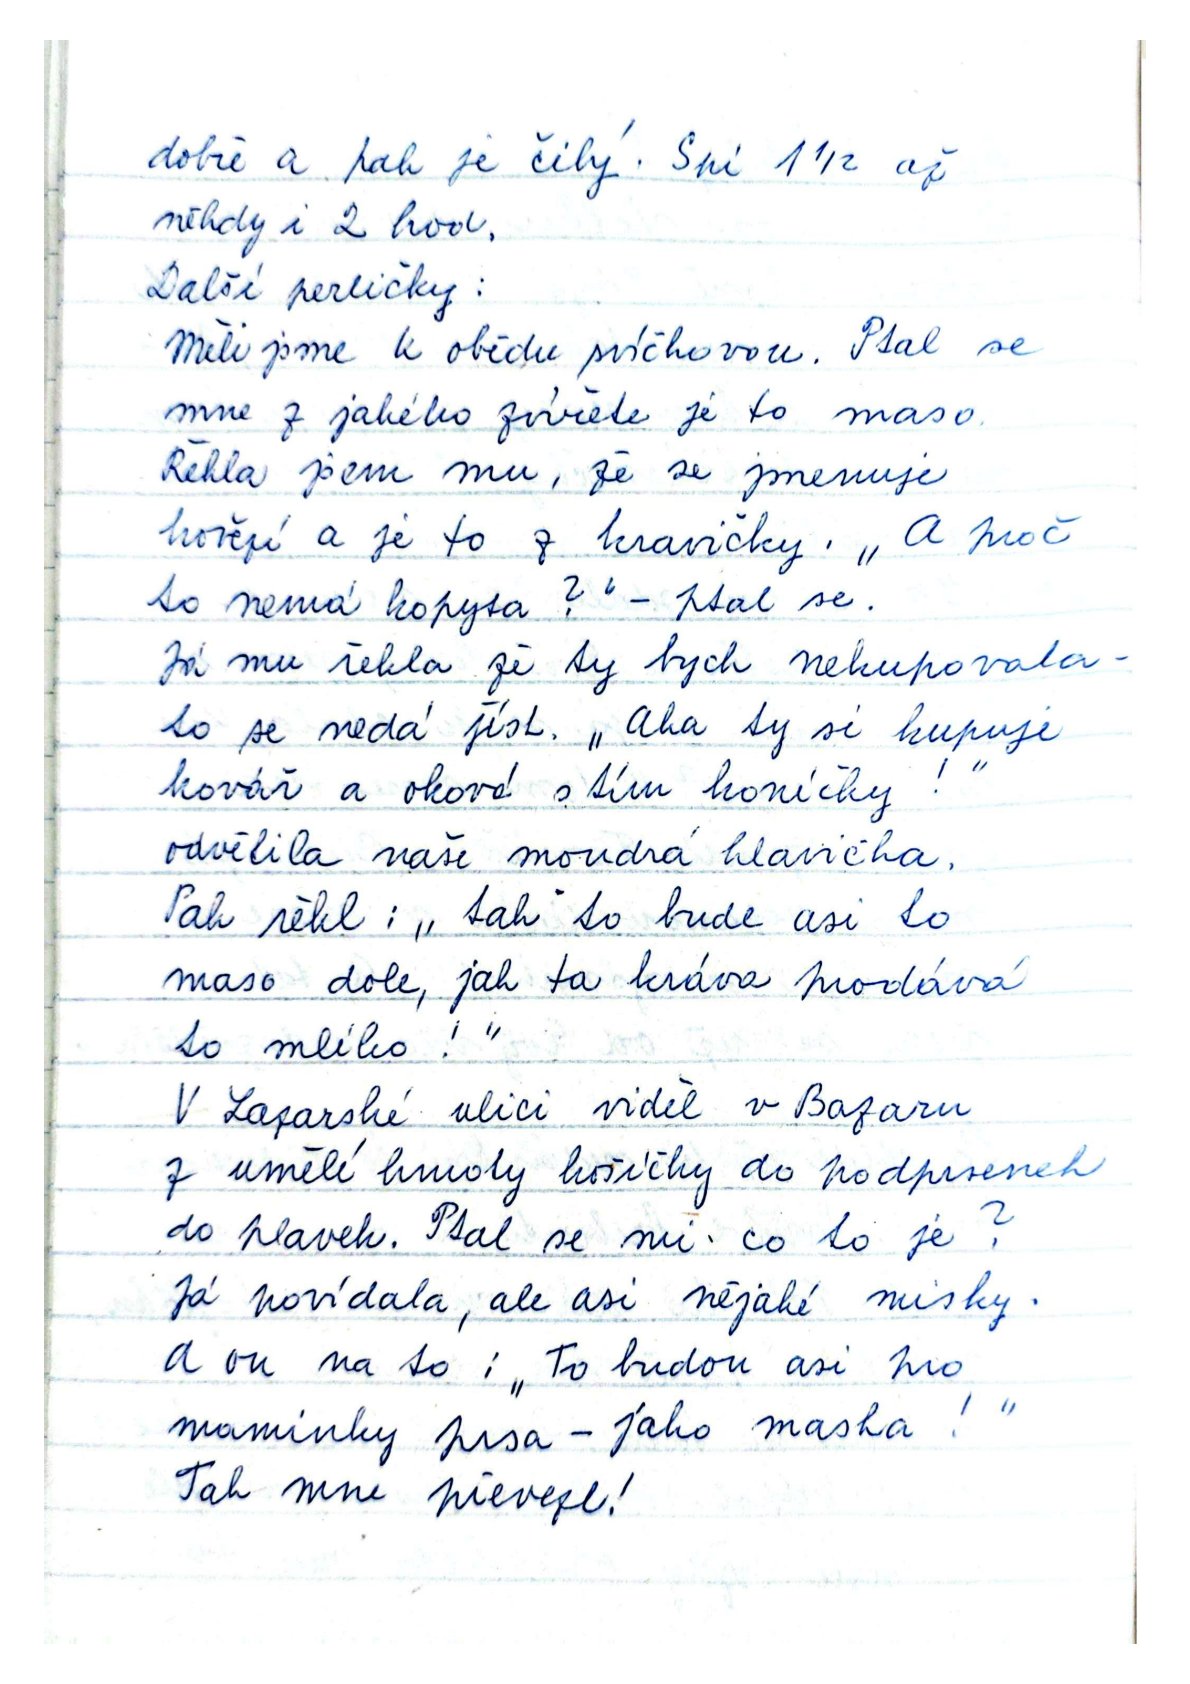 dobře a pak je čilý. Spí 1 1/2 až
někdy i 2 hod.
Další perličky:
Měli jsme k obědu svíčkovou. Ptal se
mne z jakého zvířete je to maso.
Řekla jsem mu, že se jmenuje
hovězí a je to z kravičky. „A proč
to nemá kopyta?“ – ptal se.
Já mu řekla že ty bych nekupovala –
to se nedá jíst. „Aha ty si kupuje
kovář a oková s tím koníčky!“
odvětila naše moudrá hlavička.
Pak řekl: „tak to bude asi to
maso dole, jak ta kráva prodává
to mlíko!“
V Lazarské ulici viděl v Bazaru
z umělé hmoty košíčky do podprsenek
do plavek. Ptal se mi co to je?
Já povídala, ale asi nějaké misky.
A on na to: „To budou asi pro
maminky prsa – jako maska!“
Tak mne převezl!